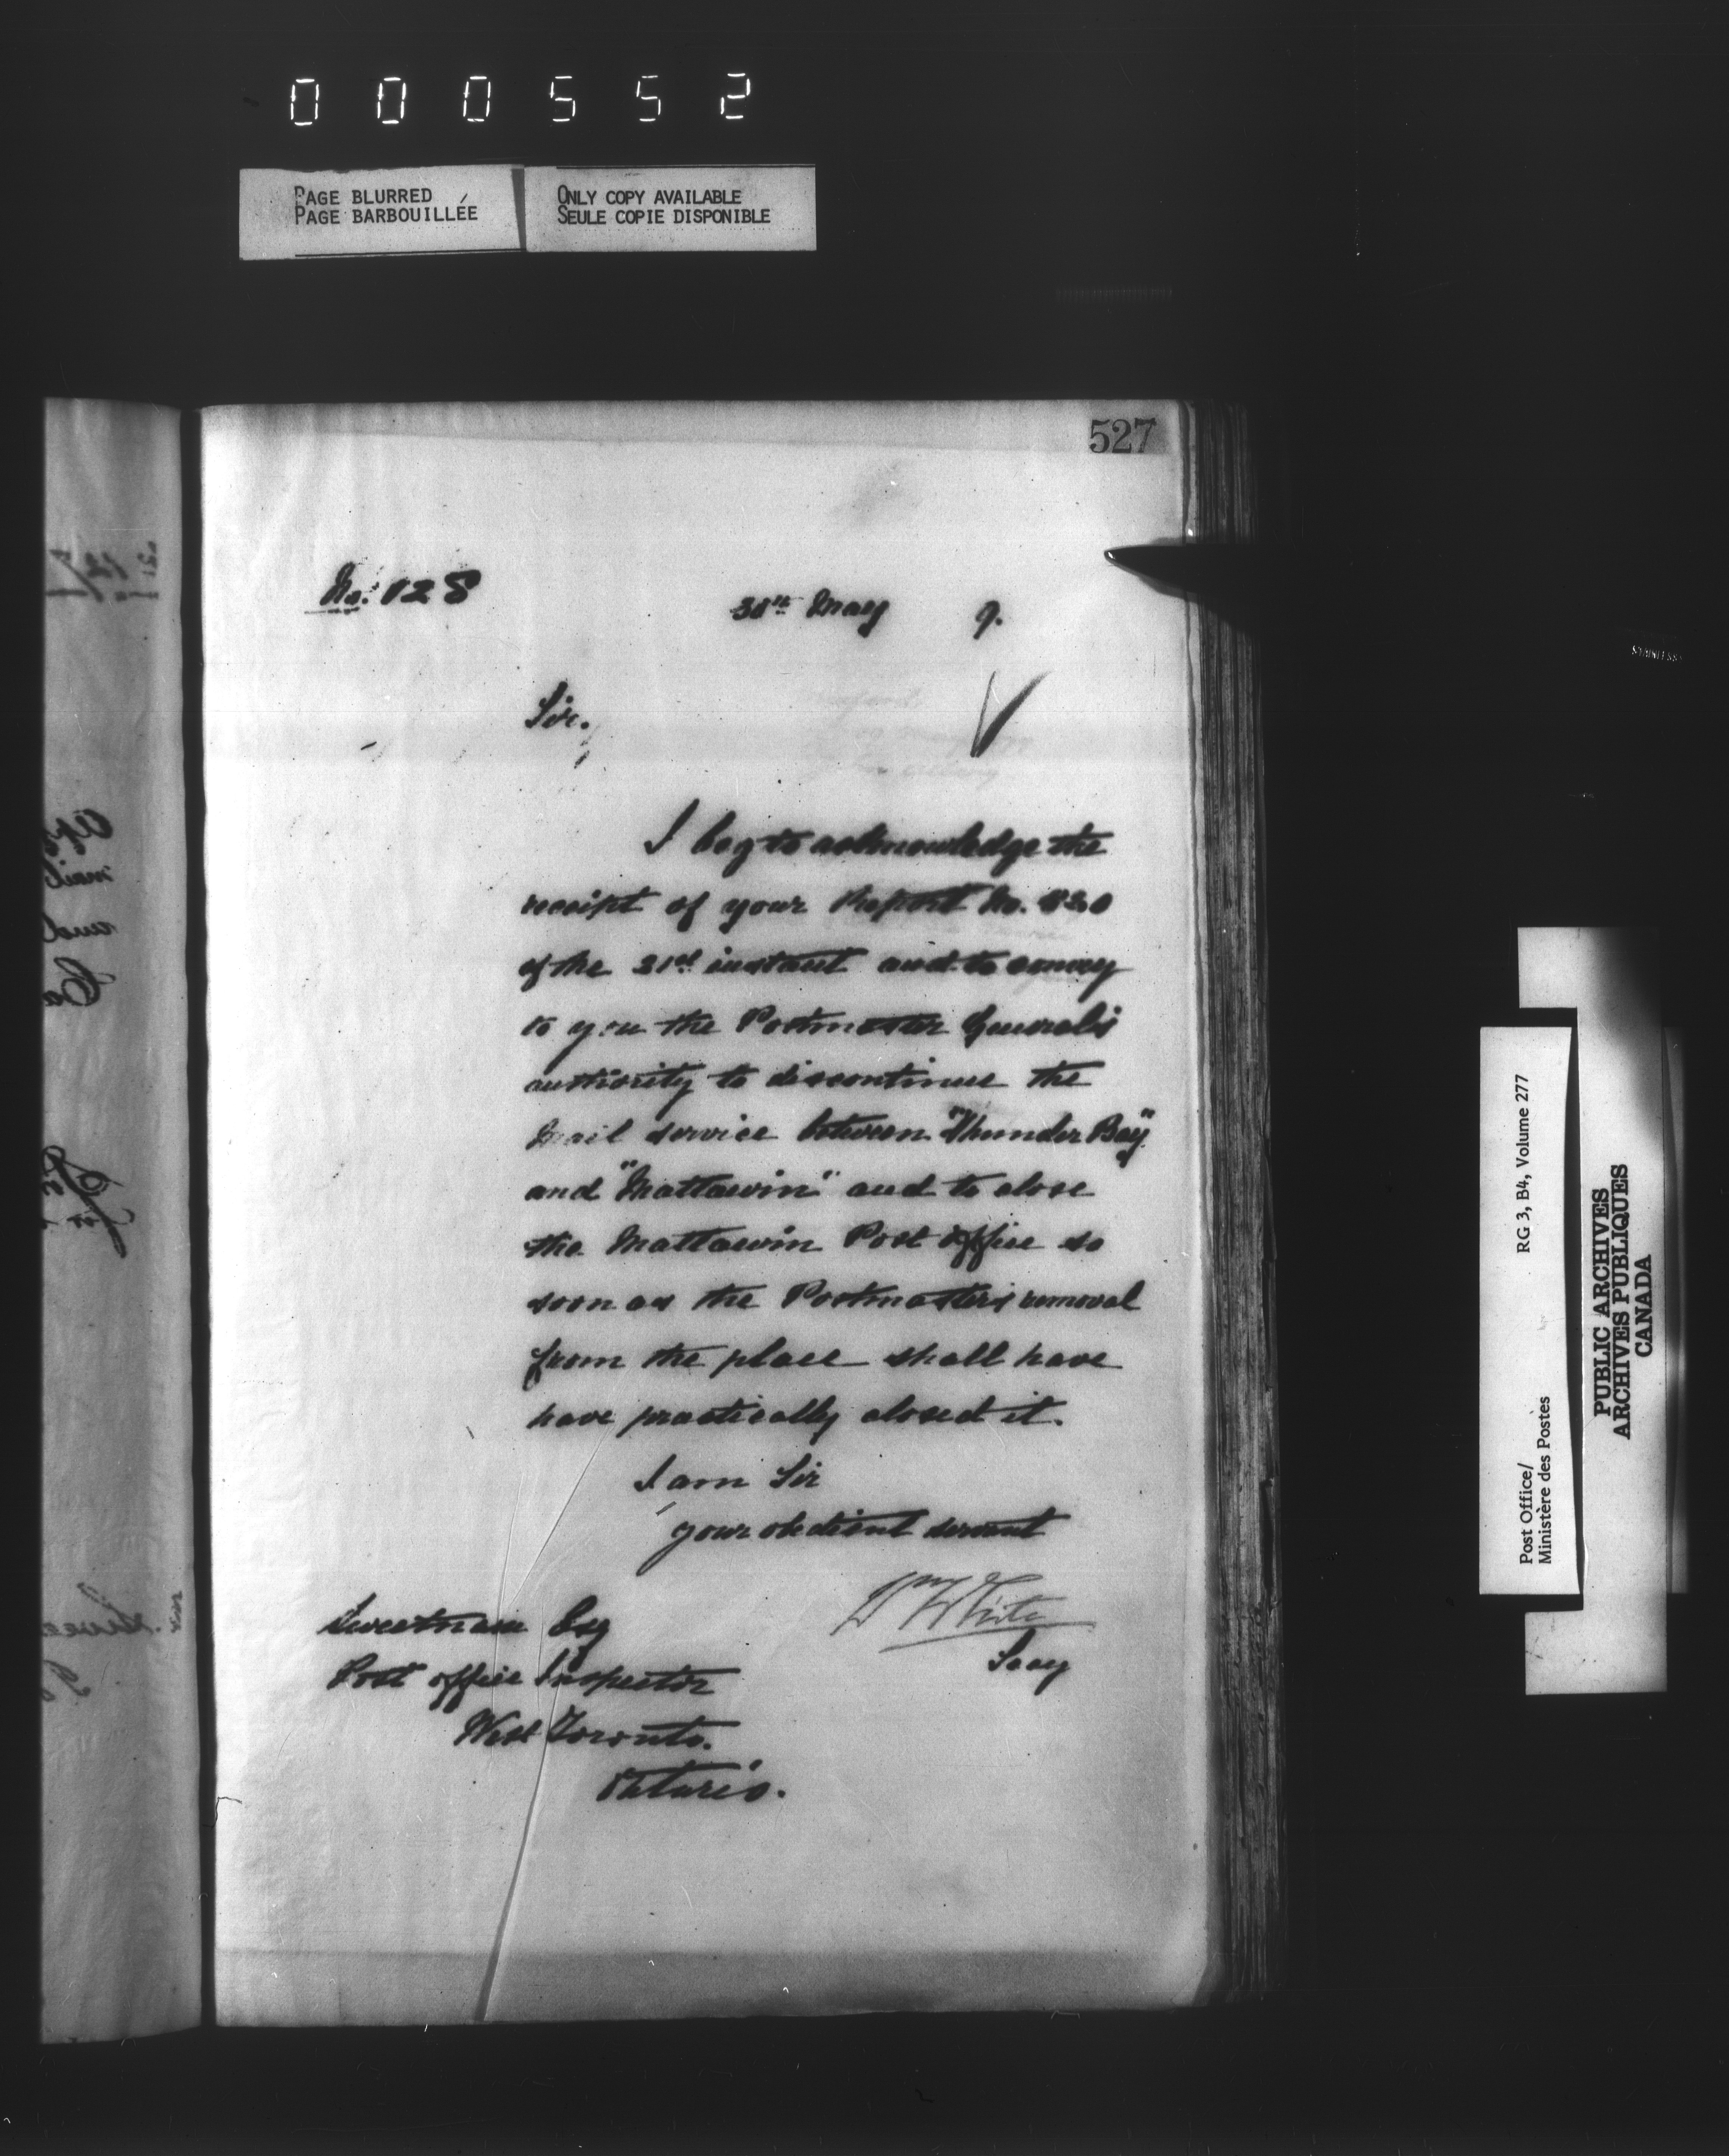 000552
PAGE BLURRED
PAGE BARBOUILLÉE
ONLY COPY AVAILABLE
SEULE COPIE DISPONIBLE
527
No. 128
30th May 9.
Sir.
I beg to acknowledge the
receipt of your Report No. 830
of the 21st instant and to convey
to you the Postmaster General's
authority to discontinue the
Mail service between "Thunder Bay"
and "Mattawin" and to close
the Mattawin Post Office so
soon as the Postmaster's removal
from the place shall have
have practically closed it.
I am Sir
your obedient servant
Wm White
Secy
Sweetnam Esq
Post office Inspector
West Toronto.
Ontario.
Post Office/
Ministère des Postes
RG 3, B4, Volume 277
PUBLIC ARCHIVES
ARCHIVES PUBLIQUES
CANADA